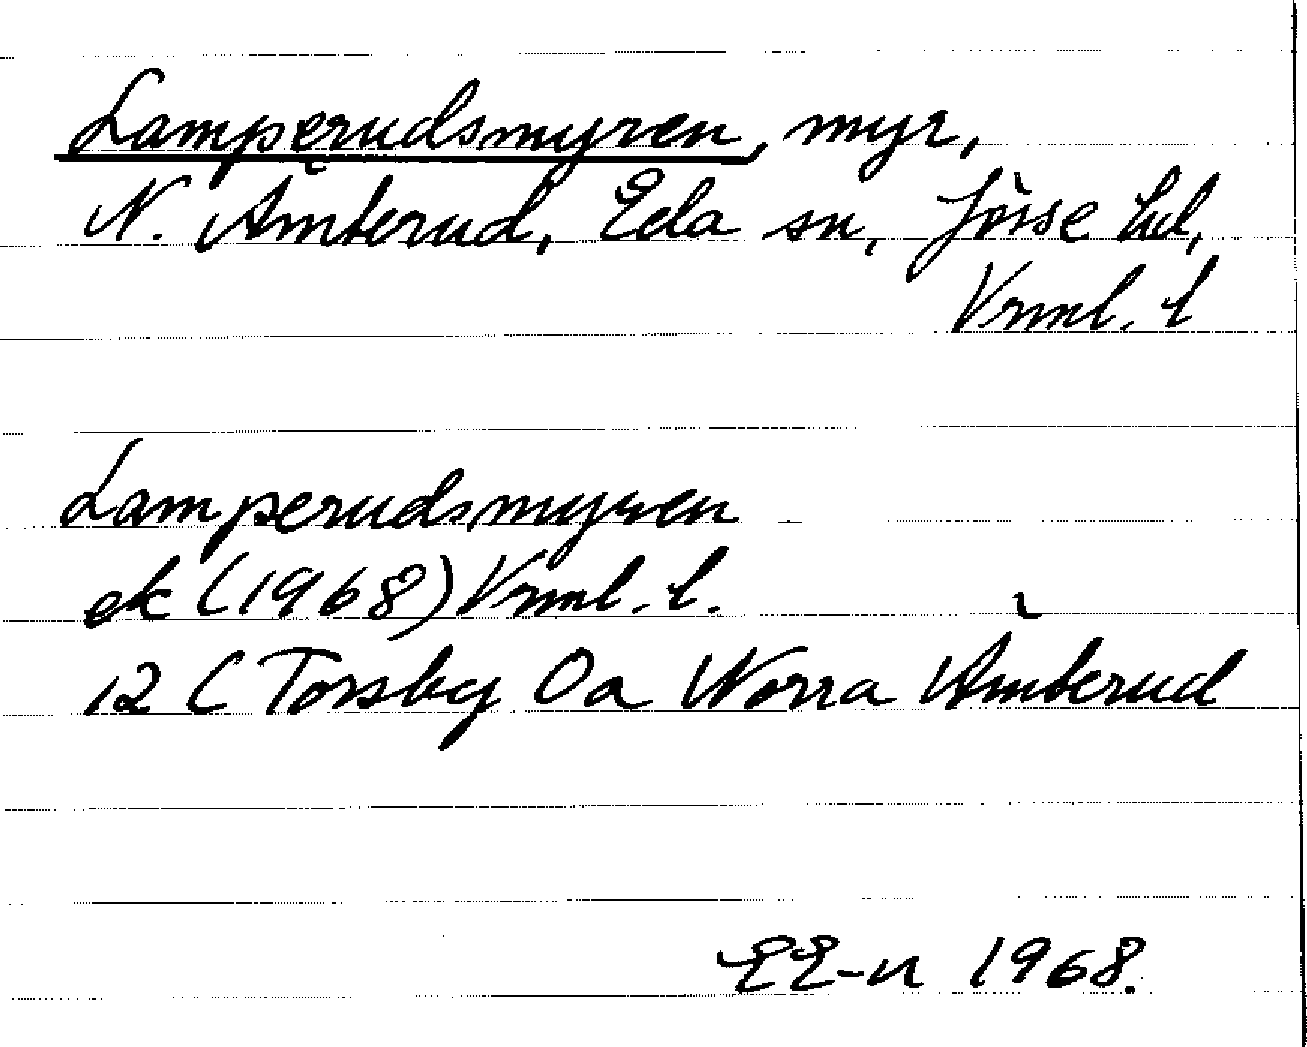 Lamperudsmyren, myr,
N. Åmterud, Eda sn, Jösse hd,
Vrml. l
Lamperudsmyren
ek (1968) Vrml. l.
12 C Torsby 0a Norra Åmterud
EE-n 1968.